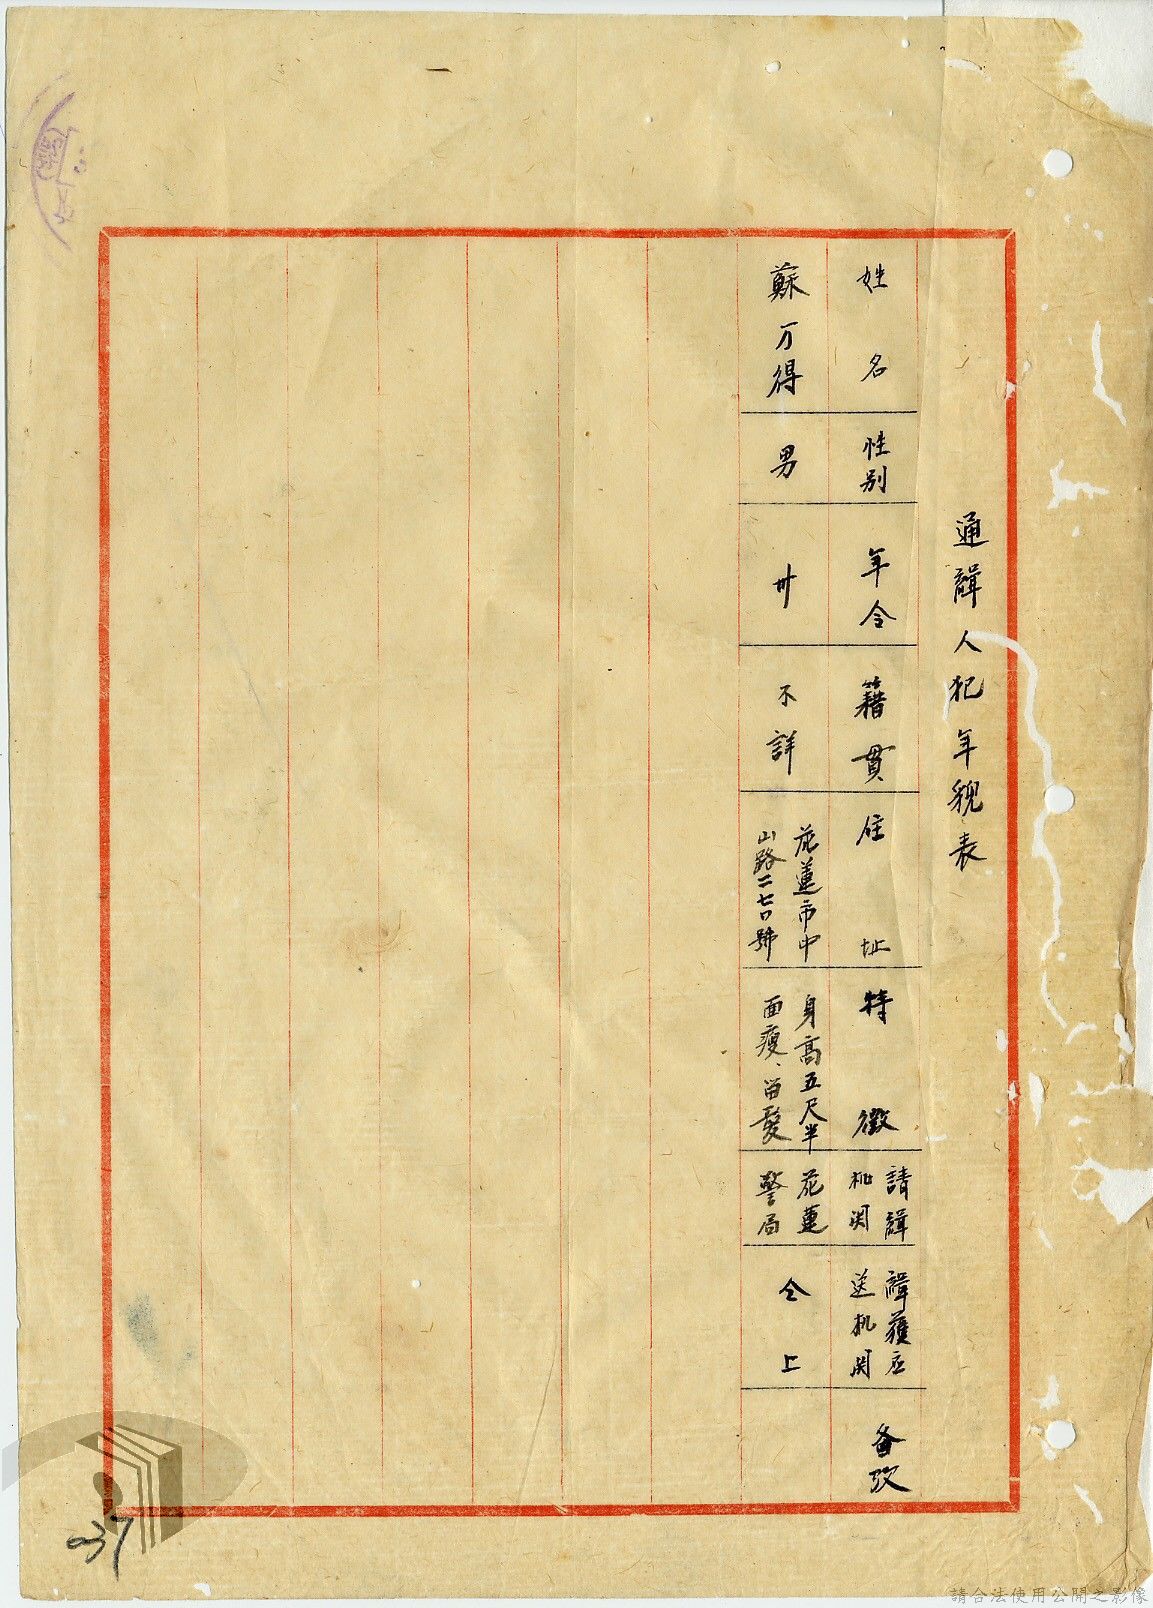 通緝人犯年貌表
姓名
性別
年令
籍貫
住址
特徵
請緝
机関
緝獲应
送机関
备攷
蘇万得
男
卅
不詳
花蓮市中
山路二七〇號
身高五尺半
面瘦、留髮
花蓮
警局
仝上
037
請合法使用公開之影像